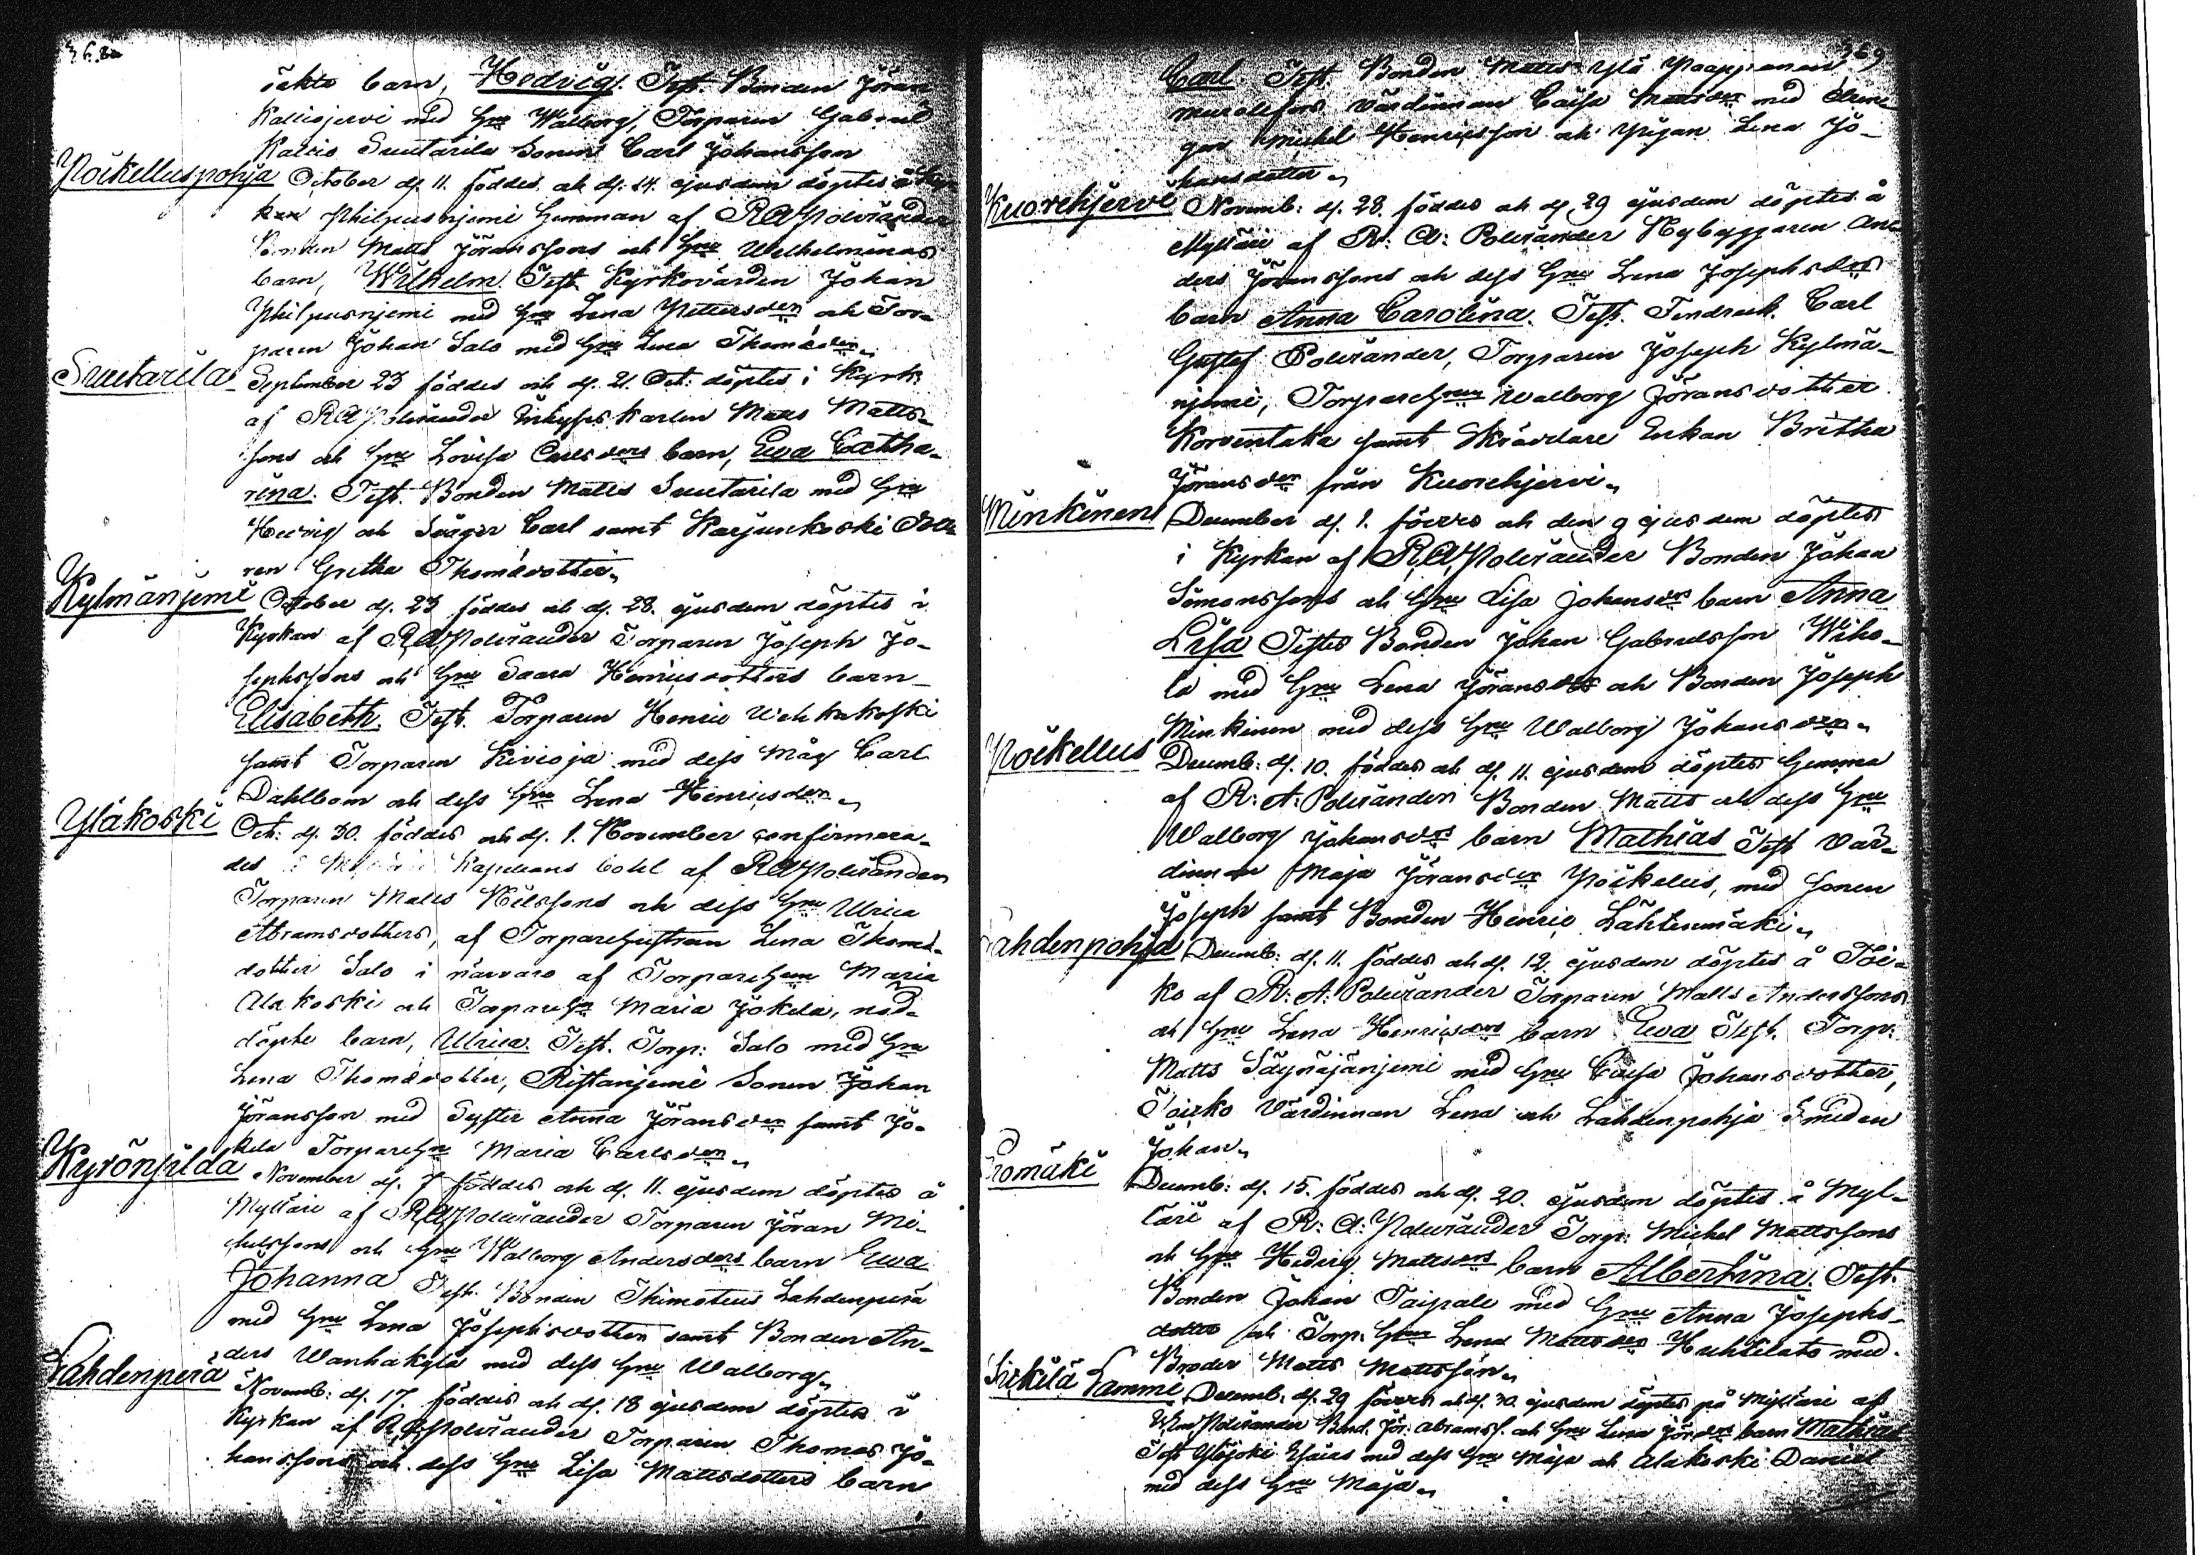 368
äkta barn, Hedvig. Test. Bonden Jöran
Kallisjervi med Hru Walborg, Torparen Gabriel
Kallio Suutarila Sonen Carl Johansson
Pöikelluspohja October d. 11. föddes och d. 14 ejusdem döptes å
Philpusnjemi hemman af R A Polviander
Bonden Matts Göranssons och Hru Wilhelminas
barn, Wilhelm. Test. Kyrkovärden Johan
Philpusnjemi med Hru Lena Pettersdr och Tor-
paren Johan Salo med Hru Lena Thomædr
Suutarila September 23 föddes och d. 21. Oct: döptes i Kyrk.
af R A Polviander Inhyses karlen Matts Matts-
sons och Hru Lovisa Carlsdrs barn, Eva Catha-
rina. Test. Bonden Matts Suutarila med Hru
Hedvig och Svåger Carl samt Karjunkoski
ran Gretha Thomædotter
Kylmänjemi October d. 23 föddes och d. 28. ejusdem döptes i
Kyrkan af R A Polviander Torparen Joseph Jo-
sephssons och Hru Saara Henricsdotters barn
Elisabeth. Test. Torparen Henric Wehkakoski
samt Torparen Kivioja med dess Måg Carl
Dahlbom och dess Hru Lena Henricsdr
Yläkoski Oct: d. 30. föddes och d. 1. November confirmera-
des i Kapellans bohl af R A Polviander
Torparen Matts Nilssons och dess Hru Ulrica
Abramsdotters, af Torparehustrun Lena Thomæ-
dotter Salo i närvaro af TorpareHrun Maria
Alakoski och TorpareHru Maria Jokela, nöd-
döpte barn, Ulrica. Test. Torp: Salo med Hru
Lena Thomædotter, Ristanjemi Sonen Johan
Jöransson med Syster Anna Jöransdr samt Jo-
kela TorpareHru Maria Carlsdr
Kyrönsilda November d. 7 föddes och d. 11. ejusdem döptes å
Mylläri af R A Polviander Torparen Jöran Mi-
chelssons och Hru Walborg Andersdrs barn Ewa
Johanna Test. Bonden Thimoteus Lahdenperä
med Hru Lena Josephsdotter samt Bonden An-
ders Wanhakylä med dess Hru Walborg
Lahdenperä Novemb: d. 17. föddes och d. 18 ejusdem döptes i
Kyrkan af R A Polviander Torparen Thomas Jo-
hanssons och dess Hru Lisa Mattsdotters barn
369
Carl. Test. Bonden Matts Ylä
Värdinnan Caisa Mattsdr med dren-
gen Michel Henricsson och Pigan Lena Jo-
hansdotter
Kuorehjervi Novemb: d. 28. föddes och d. 29 ejusdem döptes å
Mylläri af R: A: Polviander Nybyggaren An-
ders Jöranssons och dess Hru Lena Josephsdrs
barn Anna Carolina. Test. Carl
Gustaf Polviander, Torparen Joseph Kylmä-
njemi, TorpareHrun Walborg Jöransdotter
Korventaka samt Skräddare Enkan Britha
Jöransdr från Kuorehjervi
Minkinen December d. 1. föddes och den 9 ejusdem döptes
i Kyrkan af R, A, Polviander Bonden Johan
Simonssons och Hru Lisa Johansdrs barn Anna
Lisa Testes Bonden Johan Gabrielsson Wiho-
la med Hru Lena Jöransdr och Bonden Joseph
Minkinen med dess Hru Walborg Johansdr
Pöikellus Decemb: d. 10. föddes och d. 11. ejusdem döptes hemma
af R: A: Polviander Bonden Matts och dess Hru
Walborg Johansdrs barn Mathias Test Vär-
dinnan Maja Jöransdr Pöikellus, med Sonen
Joseph samt Bonden Henric Lähteenmäki
Lahdenpohja Decemb: d. 11. föddes och d. 12. ejusdem döptes å Toi-
ko af R: A: Polviander Torparen Matts Anderssons
och Hru Lena Henricsdrs barn Ewa Test. Torp:
Matts Säynäjänjemi med Hru Caisa Johansdotter,
Toiko Värdinnan Lena och Lahdenpohja Smeden
Johan
Decemb: d. 15. föddes och d. 20. ejusdem döptes å Myl-
läri af R: A: Polviander Torp: Michel Mattssons
och Hru Hedvig Mattsdrs barn Albertina. Test.
Bonden Johan Taipale med Hru Anna Josephs-
dotter och Torp: Hrun Lena Mattsdr Huhtilato med
Broder Matts Mattsson
Sirkilä Lammi Decemb. d. 29 föddes och d. 30 ejusdem döptes på Mylläri af
Polviander Bond. Jör: Abramss. och Hru Lena Jör.drs barn Mathias
Test Ylijoki Esaias med dess Hru Maja och Alakoski Daniel
med dess Hru Maja